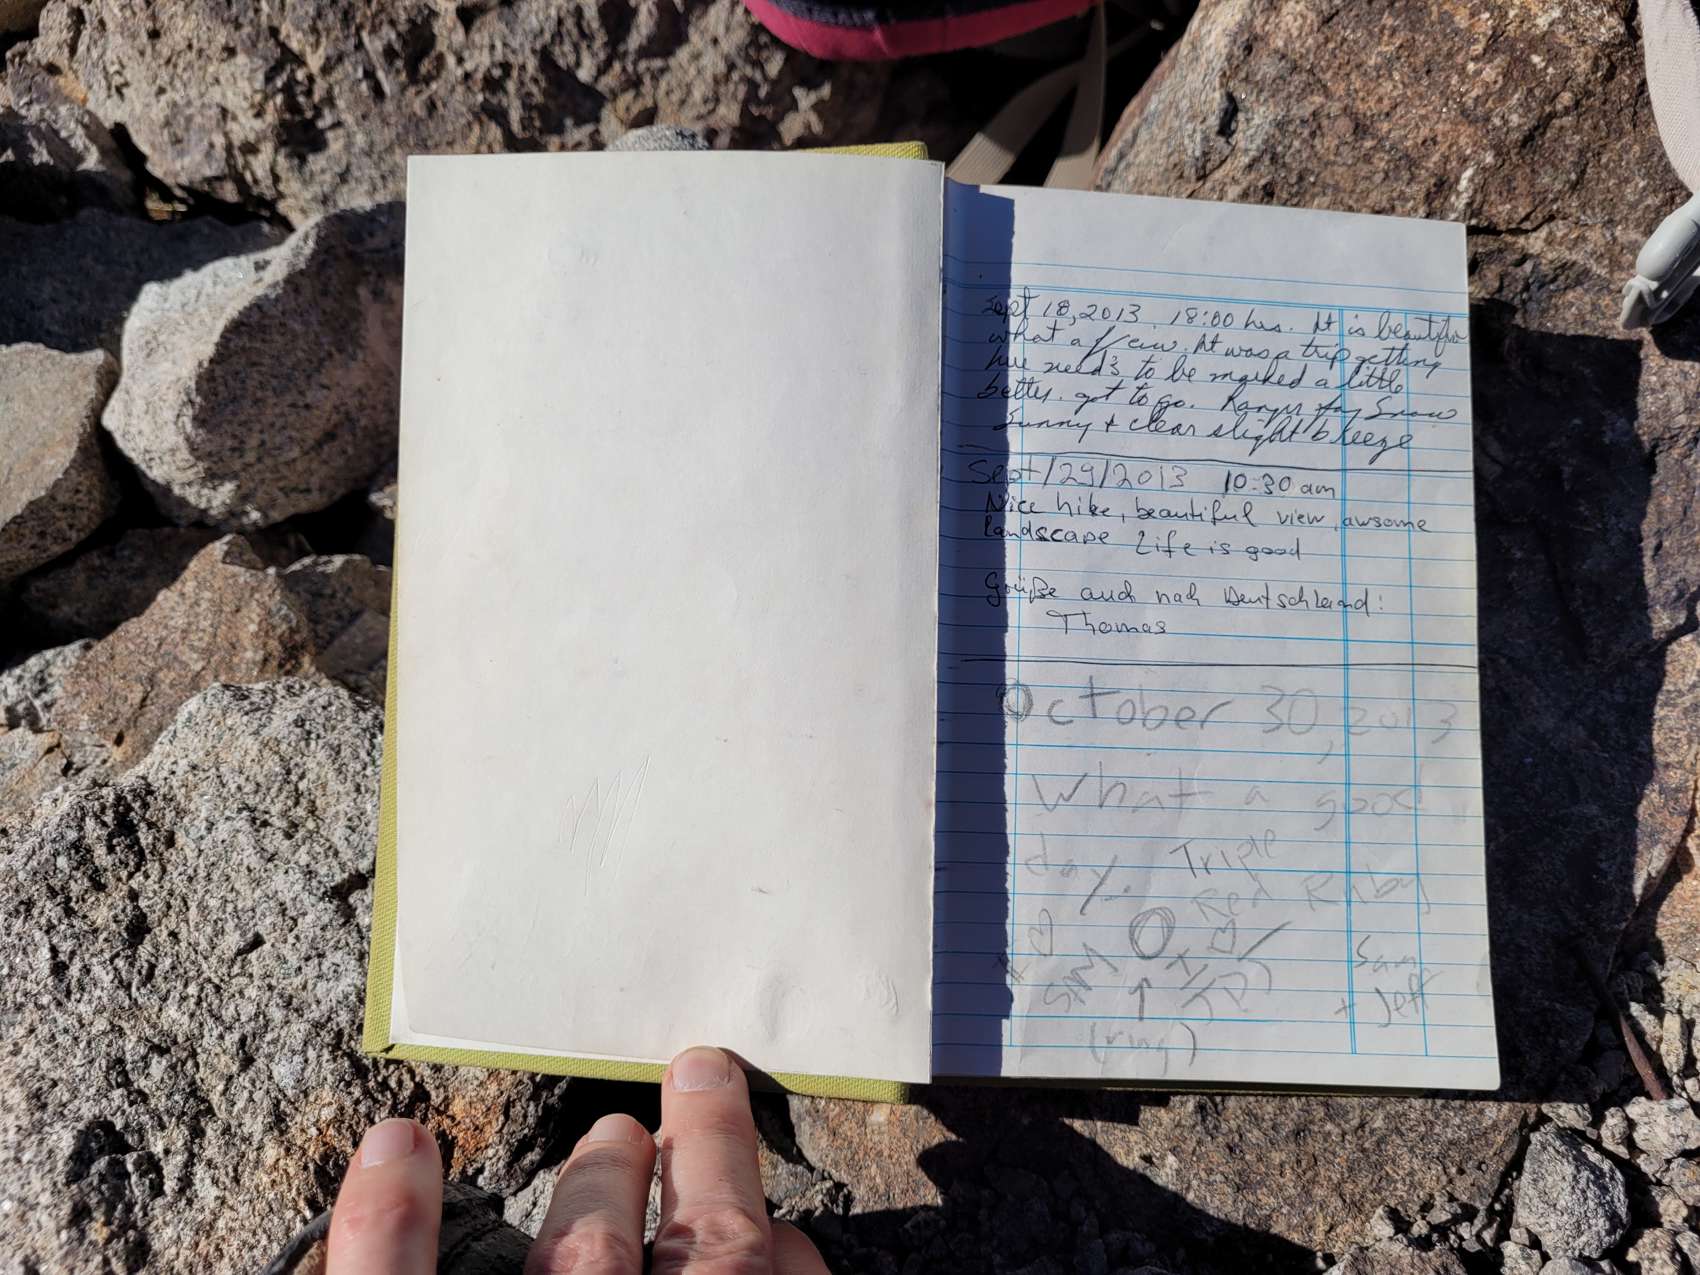 Sept 18, 2013 18:00 hrs. It is beautiful
what a view. It was a trip getting
here needs to be marked a little
better. got to go. Ranger Jay Snow
Sunny + clear slight breeze
Sept/29/2013 10:30 am
Nice hike, beautiful view, awsome
landscape Life is good
Grüße auch nach Deutschland:
Thomas
October 30, 2013
What a good
day. Triple
Red Ruby
Sam
+ Jeff
(ring)